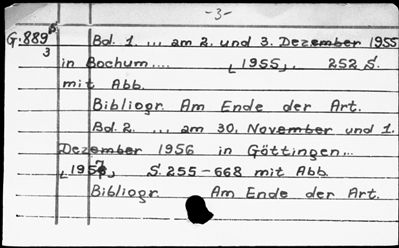 -3-
G.889 B Bd. 1. ... am 2. und 3. Dezember 1955
3
in Bochum.... ⌞1955⌟. 252 S.
mit Abb.
Bibliogr. Am Ende der Art.
Bd. 2. ... am 30. November und 1.
Dezember 1956 in Göttingen...
⌞1957⌟ S. 255-668 mit Abb.
Bibliogr. Am Ende der Art.